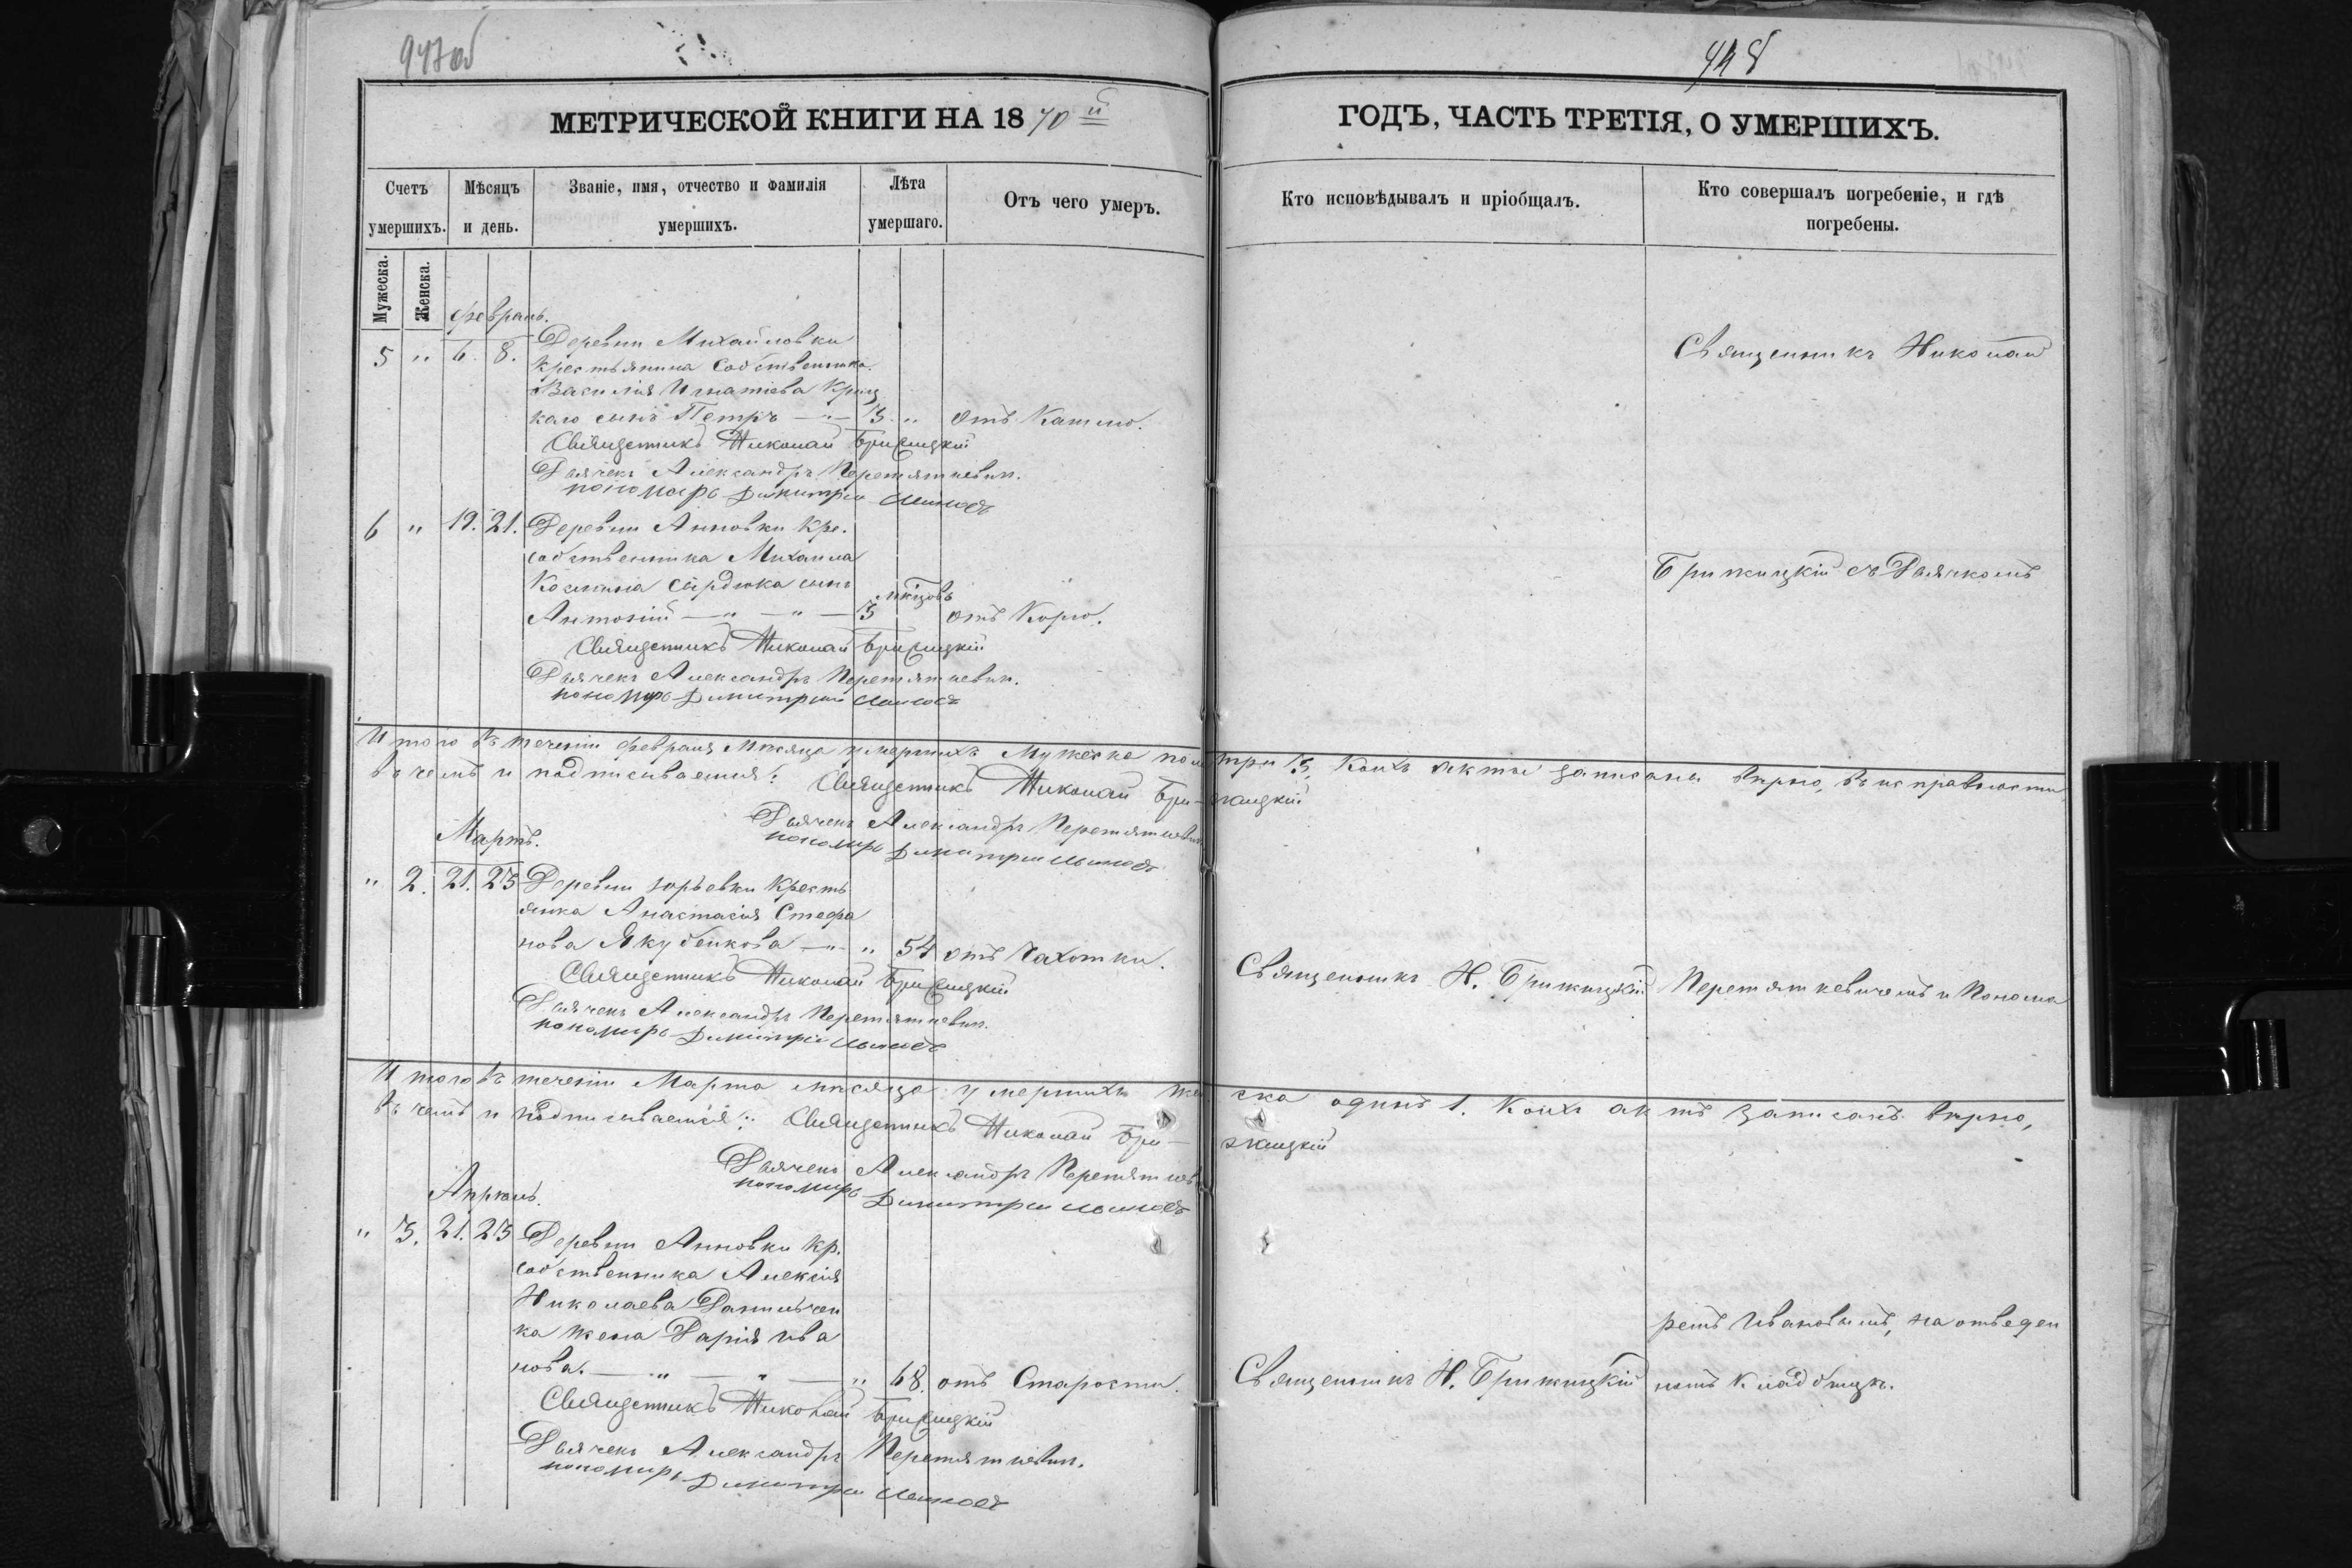 947об
948
МЕТРИЧЕСКОЙ КНИГИ НА 1870й
ГОДЪ, ЧАСТЬ ТРЕТІЯ, О УМЕРШИХЪ.
Счетъ умершихъ.
Мѣсяцъ и день.
Званіе, имя, отчество и фамилія умершихъ.
Лѣта умершаго.
Отъ чего умеръ.
Кто исповѣдывалъ и пріобщалъ.
Кто совершалъ погребеніе, и гдѣ погребены.
Мужеска.
Женска.
Февраль.
5 " 6. 8. Деревни Михайловки
крестьянина собственника
Василія Игнатіева
каго сынъ Петръ — " — 3. " отъ Кашлю.
Священникъ Николай Брижицкій
Дьячекъ Александръ Перетяткевич.
пономарь Димитрій
6 " 19. 21. Деревни Анновки кре.
собственника Михаила
Космина Сердюка сынъ
Антоній — " — " — 3 мѣсяцовъ отъ Корю.
Священникъ Николай Брижицкій
Дьячекъ Александръ Перетяткевич.
пономарь Димитрій
Священникъ Николай
Брижицкій съ Дьячкомъ
Итого въ теченіи февраля мѣсяца умершихъ Мужеска пола три 3, Коихъ акты записаны вѣрно, въ исправности
въ чемъ и подписываемся: Священникъ Николай Брижицкій
Дьячекъ Александръ Перетяткевич
пономарь Димитрій
Мартъ.
" 2. 21. 23 Деревни Юрьевки кресть
янка Анастасія Стефа
нова Якубенкова — " — " 54 отъ Чахотки.
Священникъ Николай Брижицкій
Дьячекъ Александръ Перетяткевич.
пономарь Димитрій
Священникъ Н. Брижицкій
Перетяткевичемъ и Понома
Итого въ теченіи Марта мѣсяца умершихъ женска одинъ 1. Коихъ актъ записанъ вѣрно,
въ чемъ и подписываемся: Священникъ Николай Брижицкій
Дьячекъ Александръ Перетяткев
пономарь Димитрій
Апрѣль.
" 3. 21. 23 Деревни Анновки кр.
собственника Алексія
Николаева Данильчен
ка жена Дарія Ива
нова. — " — " — " 68. отъ Старости.
Священникъ Николай Брижицкій
Дьячекъ Александръ Перетяткевич.
пономарь Димитрій
Священникъ Н. Брижицкій
ремъ Ивановымъ, на отведен
номъ кладбищѣ.